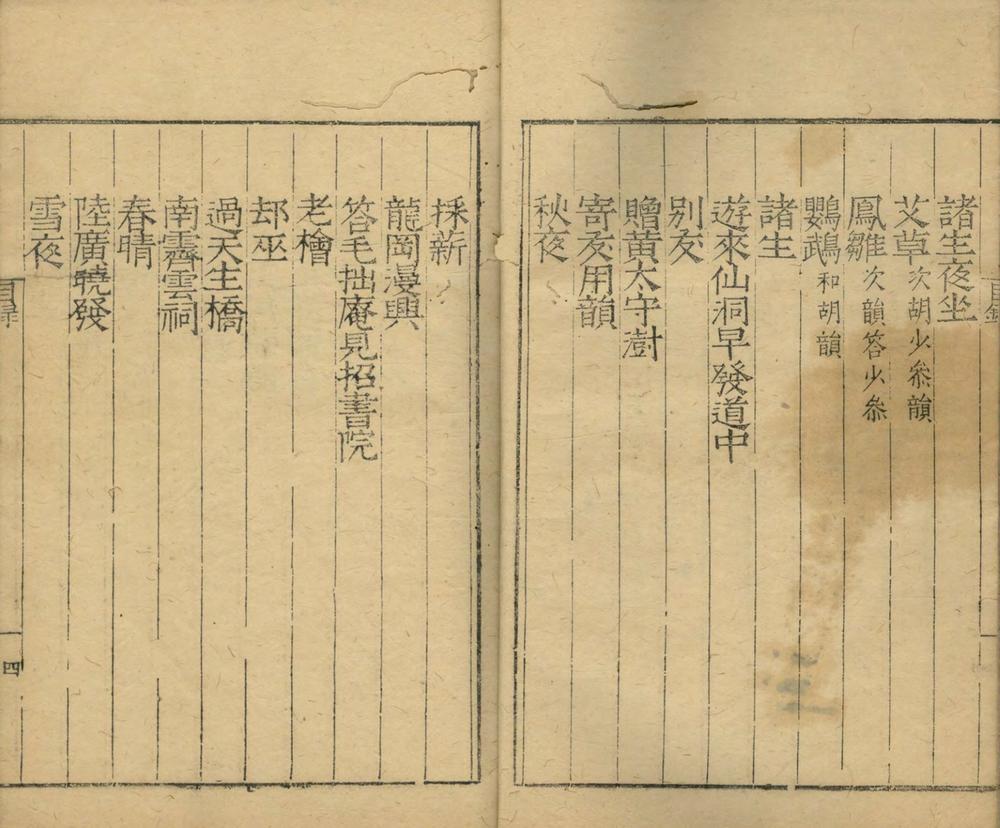 諸生夜坐
艾草次胡少叅韻
鳳雛次韻答少叅
鸚鵡和胡韻
諸生
遊來仙洞早發道中
別友
贈黃太守澍
寄友用韻
秋夜
採薪
龍岡漫興
答毛拙庵見招書院
老檜
却巫
過天生橋
南霽雲祠
春晴
陸廣曉發
雪夜
目錄
四